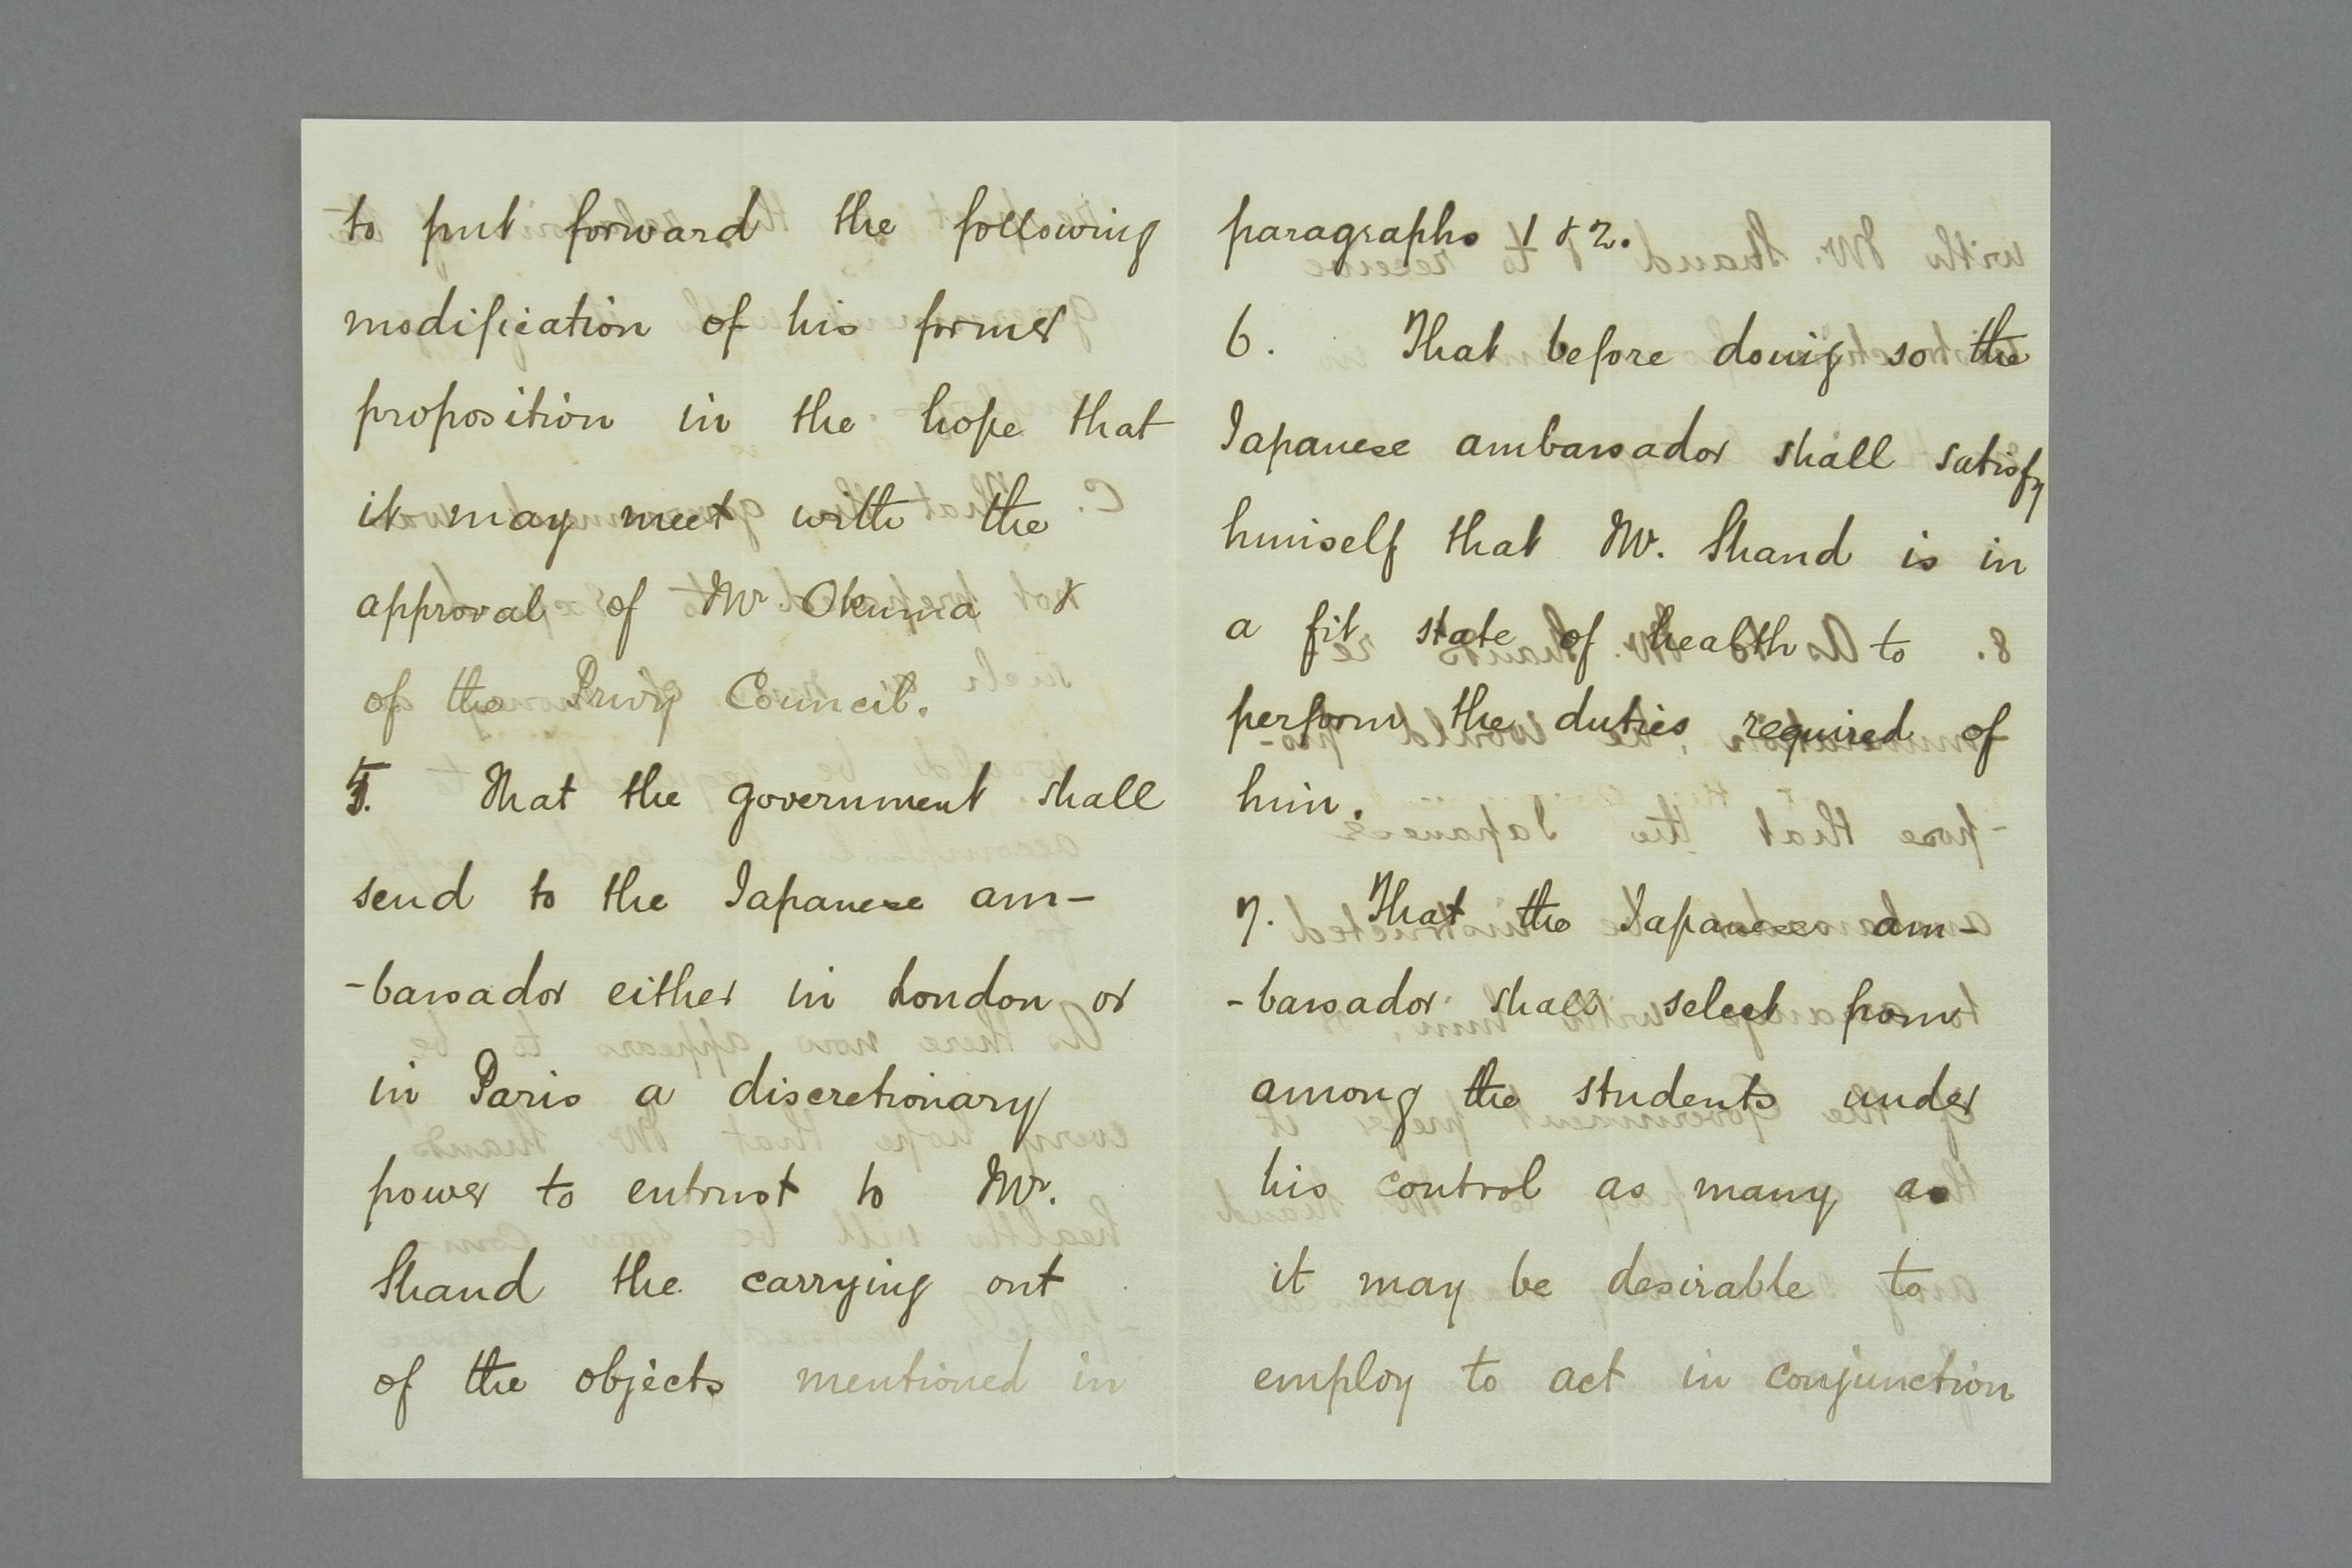 to put forward the following
modification of his former
proposition in the hope that
it may meet with the
approval of Mr. Okuma &
of the Privy Council.
5. That the government shall
send to the Japanese am-
-bassador either in London or
in Paris a discretionary
power to entrust to Mr.
Shand the carrying out
of the objects mentioned in
paragraphs 1 & 2.
6. That before doing so the
Japanese ambassador shall satisfy
himself that Mr. Shand is in
a fit state of health to
perform the duties required of
him.
7. That the Japanese am-
-bassador shall select from
among the students under
his control as many as
it may be desirable to
employ to act in conjunction